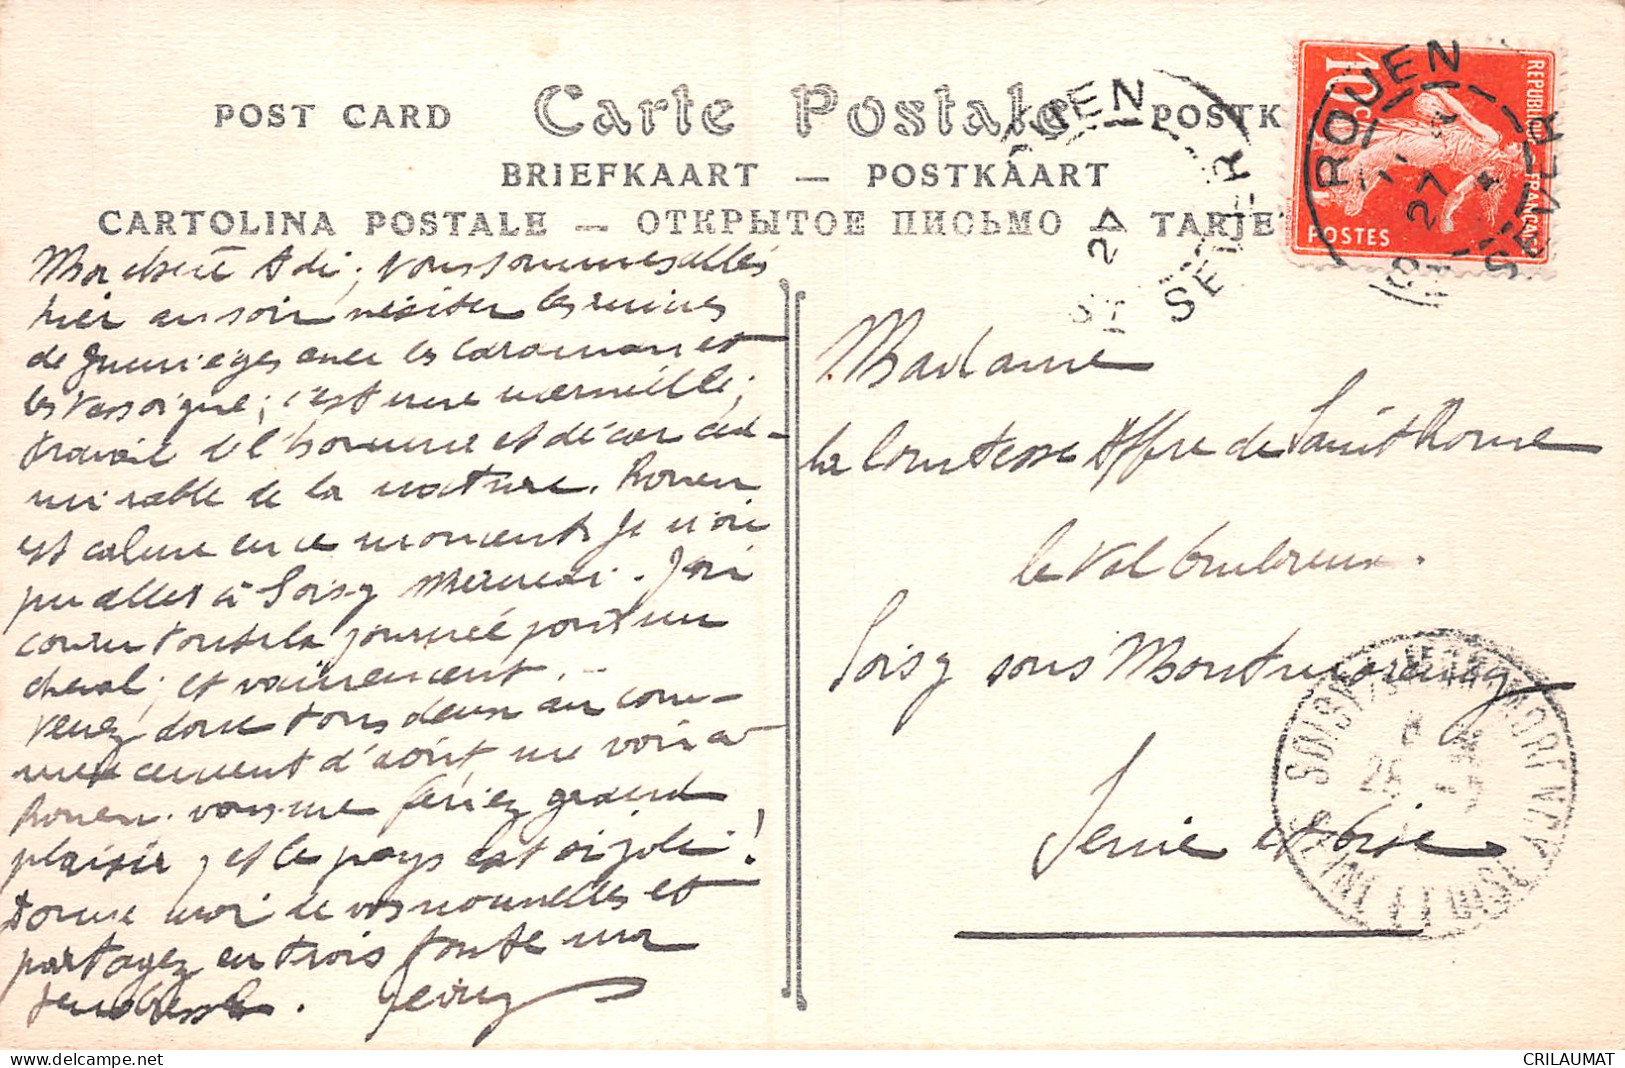 POST CARD Carte Postale POSTK
BRIEFKAART — POSTKAART
CARTOLINA POSTALE — ОТКРЫТОЕ ПИСЬМО — TARJE
REPUBLIQUE FRANÇAISE
10c
POSTES
ROUEN
27
St SEVER
ROUEN
27
St SEVER
nous sommes allés
hier au soir visiter les ruines
de Jumièges avec les Caraman et
les ; c'est une merveille ;
travail de l'homme et décor ad-
mirable de la nature. Rouen
est calme en ce moment. Je n'ai
pu aller à Soisy Mercredi. J'ai
couru toute la journée pour un
cheval ; et vainement.
Venez donc tous deux au com-
mencement d'août me voir à
Rouen. vous me feriez grand
plaisir, et le pays est si joli !
Donne moi de vos nouvelles et
partagez en trois toute ma
tendresse.
Madame
la Comtesse Affre de Saint Rome
le Val Ombreux.
Soisy sous Montmorency
Seine et Oise
SOISY-S-MONTMORENCY
SEINE ET OISE
CRILAUMAT